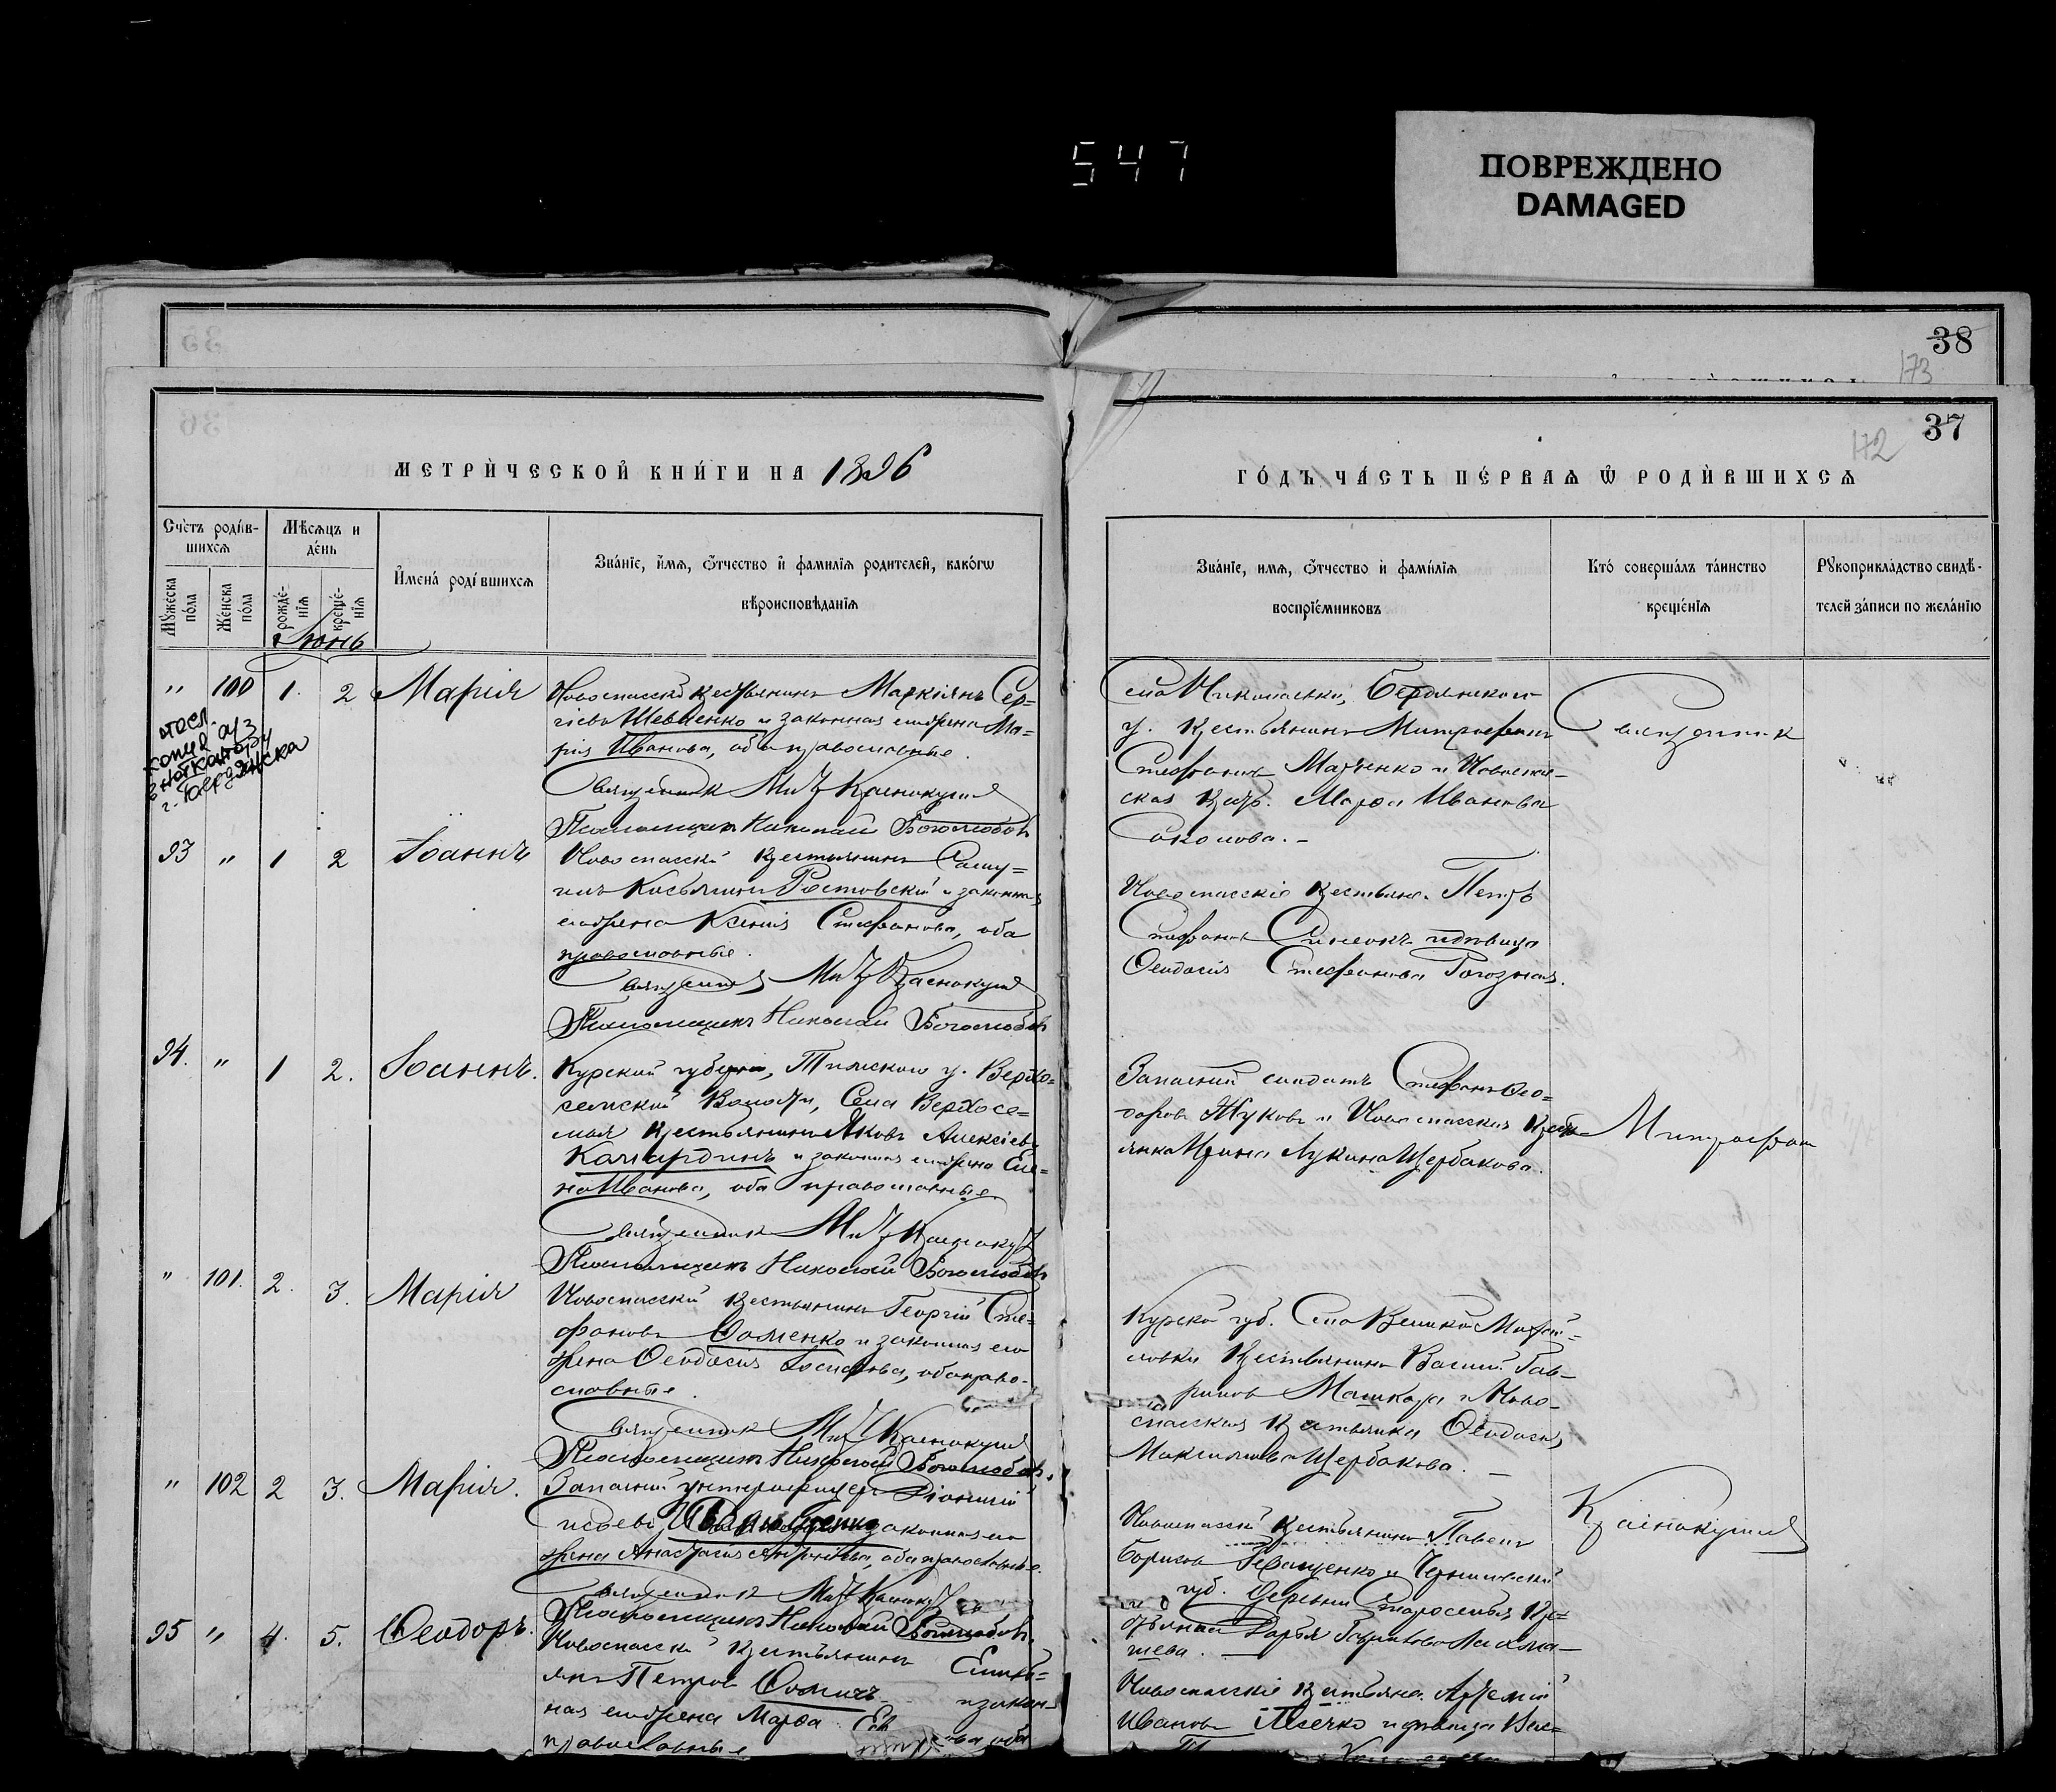 547
ПОВРЕЖДЕНО
DAMAGED
38
173
37
172
МЕТРИ́ЧЕСКОЙ КНИ́ГИ НА 1896
ГО́ДЪ ЧА́СТЬ ПЕ́РВАѦ Ѡ РОДИ́ВШИХСѦ
Сче́тъ роди́в-
шихсѧ
Мѣсѧцъ и
де́нь
Мꙋжеска по́ла
Же́нска по́ла
рожде́-нїѧ
креще́-нїѧ
И҆мена̀ роди́вшихсѧ
Зва́нїе, и҆́мѧ, ѻ҆́тчество и҆ фамилїѧ родителей, како́гѡ
вѣроисповѣ́данїѧ
Зва́нїе, имѧ, ѻ҆́тчество и҆ фами́лїѧ
воспрїе́мниковъ
Кто́ соверша́лъ та́инство
креще́нїѧ
Рꙋкоприкла́дство свидѣ́-
телей за́писи по жела́нїю
Іюнь
" 100 1. 2 Марія
Новоспасскій крестьянинъ Маркіянъ Сер=
гіевъ Шевченко и законная его жена Ма=
рія Иванова, оба православные.
Священникъ Митр Краснокутскій
Псаломщикъ Николай Боголюбовъ
Села Николаевки, Бердянскаго
у. крестьянинъ Митрофанъ
Стефановъ Марченко и Новоспас-
ская крест. Марфа Иванова
Соколова. -
Священник
копия
г. Бердянска
93 " 1 2 Іоаннъ
Новоспасскій крестьянинъ Саму=
илъ Косьминъ Ростовскій и законная
его жена Ксенія Стефанова, оба
православные.
Священник Митр Краснокутскій
Псаломщикъ Николай Боголюбовъ
Новоспасскіе крестьяне Петръ
Стефановъ и девица
Феодосія Стефанова Рогозная.
94. " 1 2. Іоаннъ.
Курской губерніи, Тимскаго у. Верхо=
семской Волости, Села Верхосе=
мья крестьянинъ Яковъ Алексіевъ
Камардинъ и законная его жена Еле=
на Иванова, оба православные.
Священникъ Митр Краснокут
Псаломщикъ Николай Боголюбовъ
Запасный солдатъ Стефанъ Фео=
доровъ Жуковъ и Новоспасская крест-
янка Ирина Лукина Щербакова.
Митрофан
" 101. 2. 3. Марія
Новоспасскій крестьянинъ Георгій Сте=
фановъ Фоменко и законная его
жена Феодосія, оба право-
славные.
Священник Митр Краснокутскій
Псаломщикъ Николай Боголюбовъ.
Курской губ. Села Великой Михай-
ловки крестьянинъ Василій Гав-
риловъ Машкара и Ново-
спасская крестьянка Феодосія
Максимова Щербакова. -
" 102 2 3. Марія.
Запасный унтерофицеръ Діонисій
законная его
жена Анастасія Антоніева, оба православные.
Священник Митр Краснокут
Псаломщикъ Николай Боголюбовъ.
Новоспасскій крестьянинъ Павелъ
Борисовъ Геращенко и Черниговской
губ. деревни Староселья кре=
стьянка Дарья
шева. -
Краснокутскій
95 " 4. 5. Феодоръ.
Новоспасскій крестьянинъ Емель=
янъ Петровъ Фомичъ и закон-
ная его жена Марфа оба
православные
Новоспасскіе крестьяне Артемій
Ивановъ Плечко и девица